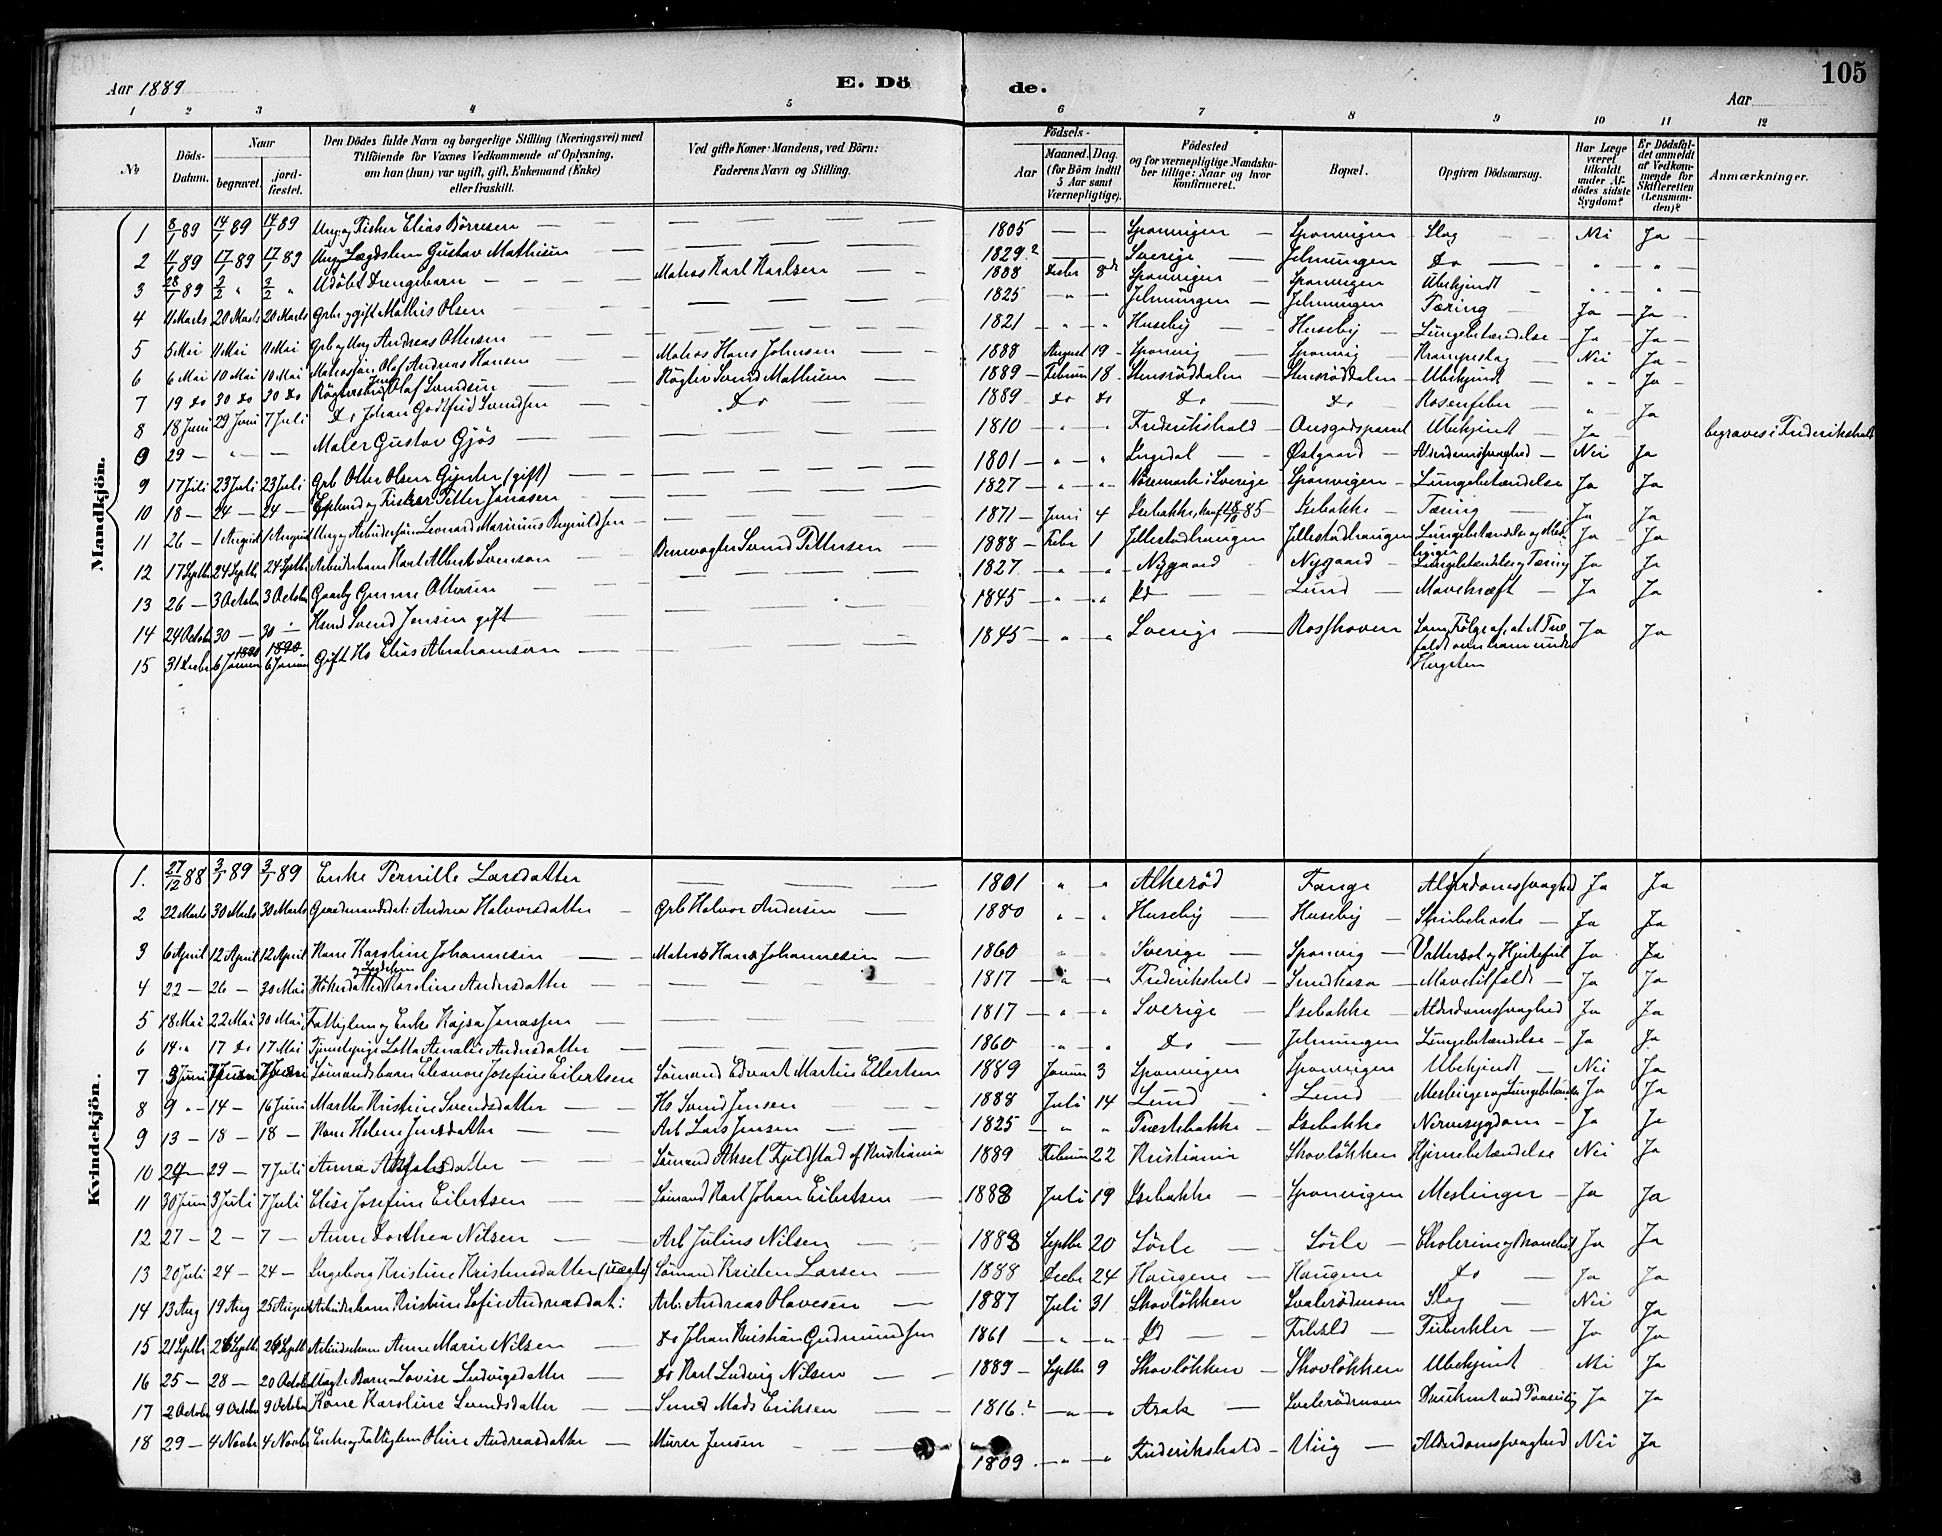 Aar 1889
E. Dö
de.
105
Aar
1 2 3 4 5 6 7 8 9 10 11 12
No
Döds-Datum.
Naar
begravet.
jord-fæstet.
Den Dödes fulde Navn og borgerlige Stilling (Næringsvei) med
Tilföiende for Voxnes Vedkommende af Oplysning,
om han (hun) var ugift, gift, Enkemand (Enke)
eller fraskilt.
Ved gifte Koner: Mandens, ved Börn:
Faderens Navn og Stilling.
Födsels-
Aar
Maaned. Dag.
(for Börn indtil
5 Aar samt
Værnepligtige).
Födested
og for værnepligtige Mandska-
ber tillige: Naar og hvor
konfirmeret.
Bopæl.
Opgiven Dödsaarsag.
Har Læge
været
tilkaldt
under Af-
dödes sidste
Sygdom?
Er Dödsfal-
det anmeldt
af Vedkom-
mende for
Skifteretten
(Lensman-
den)?
Anmærkninger.
Mandkjön.
1 8/1 89 14/1 89 14/1 89 Ung. og Fisker Elias Börresen — 1805 — — Sponvigen Sponvigen Slag Nei Ja
2 11/1 89 17/1 89 17/1 89 Gustav Mathisen — 1829? — — Sverige Jelmungen Do " "
3 28/1 89 3/2 " 3/2 " Udöbt Drengebarn — Matros Karl Karlsen — Decbr 8de Sponvigen Sponvigen Ubekjendt
4 11 Marts 20 Marts 20 Marts Grbr og gift Mathis Olsen — 1825 Jelmungen Jelmungen Tæring Ja Ja
5 5 Mai 11 Mai 11 Mai Grb og Ung Andreas Ottersen — 1821 Huseby Huseby Lungebetændelse Ja Ja
6 6 Mai 10 Mai 10 Mai Olaf Andreas Hansen Matros Hans Johnsen 1888 August 19 Sponvig Sponvig Krampeslag Nei Ja
7 19 do 30 do 30 do Olaf Svendsen Svend Mathisen 1889 Februar 18 Stensröddalen Stensröddalen Ubekjendt " Ja
8 18 Juni 29 Juni 7 Juli Do Johan Godtfred Svendsen Do 1889 do do Do Do Rosenfeber " Ja
0 29 — " — Maler Gustav Gjös — 1810 Frederikshald Ubekjendt Ja begraves i Frederikshald
9 17 Juli 23 Juli 23 Juli Grb Otter Olsen (gift) 1801 Østgaard Alderdomssvaghed Nei Ja
10 18 — 24 — 24 — og Fisker Petter Jonasen 1827 Nösemark i Sverige Sponvigen Lungebetændelse Ja Ja
11 26 — 1 August 1 August Ung og Arbeidersön Leonard Marinius 1871 Juni 4 Isebakke, 85 Isebakke Tæring Ja Ja
12 17 Septbr 24 Septbr 24 Septbr Arbeiderbarn Karl Albert Svenson Svend Pettersen 1888 Febr 1 Jellestadhaugen Jellestadhaugen Lungebetændelse og Ja Ja
13 26 — 3 Octobr 3 Octobr Gunne Ottersen 1827 Nygaard Nygaard Lungebetændelse og Tæring Ja Ja
14 24 Octobr 30 — 30 — Svend Jensen gift 1845 Id Lund Mavekræft Ja Ja
15 31 Decbr 6 Januar 1890 6 Januar Gift Hs Elias Abrahamson — 1845 Sverige Rosshoven Som Fölge af, at et Træ
faldt over ham under
Hugsten Ja Ja
Kvindekjön.
1. 27/12 88 3/1 89 3/1 89 Enke Pernille Larsdatter — 1801 Alkeröd Fange Alderdomssvaghed Ja Ja
2 22 Marts 30 Marts 30 Marts Gaardmandsdat: Andrea Halvorsdatter Grb Halvor Andersen 1880 Huseby Huseby Strubehoste Ja Ja
3 6 April 12 April 12 April Kone Karoline Johannesen Matros Hans Johannesen 1860 Sverige Sponvig Vattersot og Hjertefeil Ja Ja
4 22 — 26 — 30 Mai Karoline Andersdatter — 1817 Frederikshald Mavetilfælde Ja Ja
5 18 Mai 22 Mai 30 Mai Fattiglem og Enke Kajsa Jonassen — 1817 Sverige Isebakke Alderdomssvaghed Ja Ja
6 14 " 17 do 17 Mai Tjenestepige Lotta Amalie Andersdatter — 1860 Do Jelmungen Lungebetændelse Ja Ja
7 3 Juni 7 Juni 7 Juni Sömandsbarn Eleonore Josefine Eilertsen Sömand Edvart Martin Eilertsen 1889 Januar 3 Sponvigen Sponvigen Ubekjendt Nei Ja
8 9 — 14 — 16 Juni Martha Kristine Svendsdatter Hs Svend Jensen 1888 Juli 14 Lund Lund Meslinger og Lungebetændelse Ja Ja
9 13 — 18 — 18 — Kone Helene Jensdatter Arb Lars Jensen 1825 Præstebakke Isebakke Nervesygdom Ja Ja
10 24 — 29 — 7 Juli Anna Akselsdatter Sömand Aksel Fjeldstad af Kristiania 1889 Februar 22 Kristiania Skovlökken Hjernebetændelse Nei Ja
11 30 Juni 3 Juli 7 Juli Elise Josefine Eilertsen Sömand Karl Johan Eilertsen 1888 Juli 19 Isebakke Sponvigen Meslinger Ja Ja
12 27 — 2 — 7 — Anne Dorthea Nilsen Arb Julius Nilsen 1888 Septbr 20 Sörle Sörle Cholerine og Ja Ja
13 20 Juli 24 — 24 — Ingeborg Kristine Kristensdatter (uægte) Sömand Kristen Larsen 1888 Decbr 24 Haugene Haugene Do Ja Ja
14 13 Aug 19 Aug 25 August Arbeiderbarn Kristine Sofie Andreasdat: Arb: Andreas Olavesen 1887 Juli 31 Skovlökken Svalerödmoen Slag Nei Ja
15 21 Septbr 26 Septbr 26 Septbr Anne Marie Nilsen Do Johan Kristian Gudmundsen 1861 Id Tuberkler Ja Ja
16 25 — 28 — 20 Octobr Uægte Barn Lovise Ludvigsdatter Do Karl Ludvig Nilsen 1889 Septbr 9 Skovlökken Skovlökken Ubekjendt Nei Ja
17 2 Octobr 9 Octobr 9 Octobr Kone Karoline Svendsdatter Mads Eriksen 1816? Svalerödmoen Ja Ja
18 29 — 4 Novbr 4 Novbr Enke og Fattiglem Oline Andreasdatter Murer Jensen 1809 Frederikshald Viig Alderdomssvaghed Nei Ja